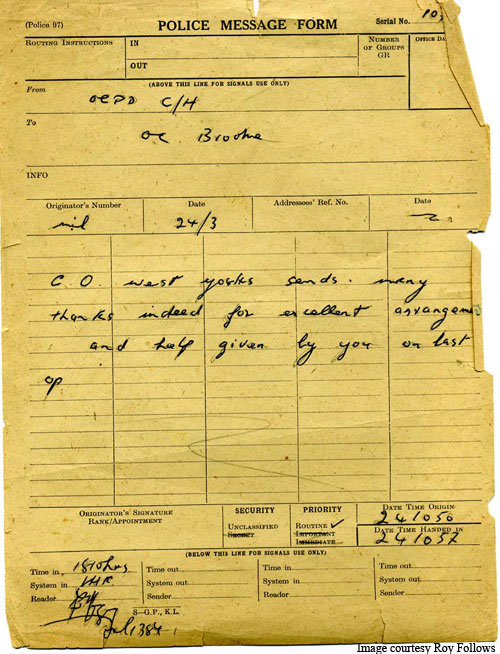 (Police 97)
POLICE MESSAGE FORM
Serial No. 103
ROUTING INSTRUCTIONS
IN
OUT
NUMBER OF GROUPS GR
OFFICE DA
(ABOVE THIS LINE FOR SIGNALS USE ONLY)
From OCPD C/H
To OC. Brooke
INFO
Originator's Number
Date
Addressees' Ref. No.
Date
nil
24/3
C.O. west yorks sends. many
thanks indeed for excellent arrangemen
and help given by you on last
op
ORIGINATOR'S SIGNATURE
RANK/APPOINTMENT
SECURITY
UNCLASSIFIED
SECRET
PRIORITY
ROUTINE ✓
IMPORTANT
IMMEDIATE
DATE TIME ORIGIN
241050
DATE TIME HANDED IN
241057
(BELOW THIS LINE FOR SIGNALS USE ONLY)
Time in 1810hrs
Time out
Time in
Time out
System in
System out
System in
System out
Reader
Sender
Reader
Sender
S—G.P., K.L.
Image courtesy Roy Follows